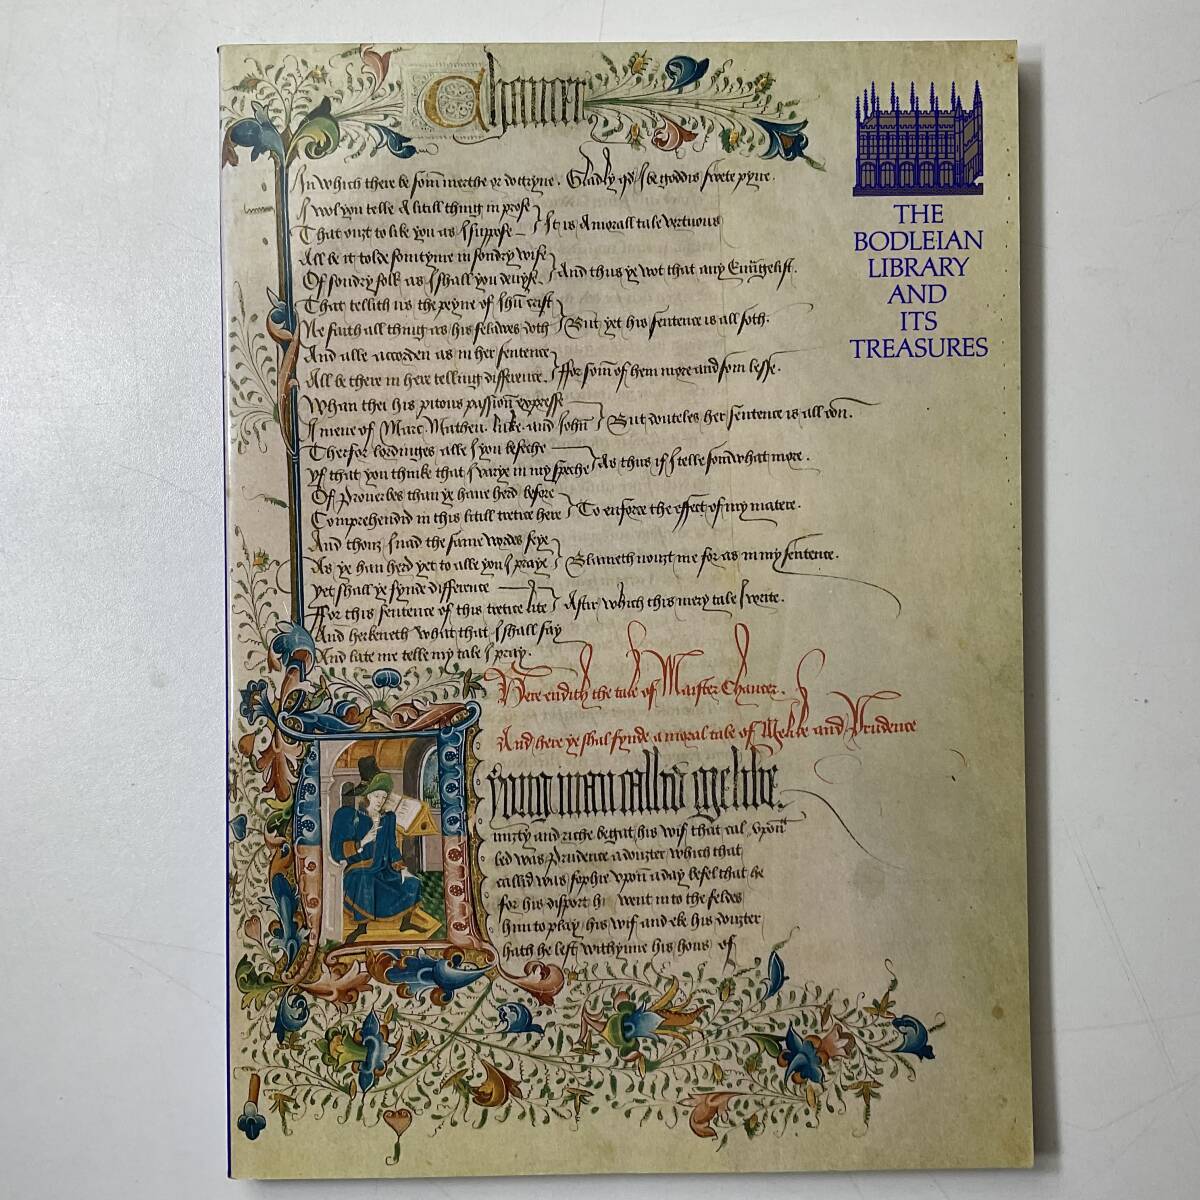 Chaucer
THE
BODLEIAN
LIBRARY
AND
ITS
TREASURES
In which there be som merthe or doctryne. Gladly qd I be goddis swete pyne.
I wol you telle A litill thing in prose
That ouzt to like you as I suppose
It is A morall tale vertuous
All be it tolde somtyme in sondry wise
Of sondry folk as I shall you devyse.
And thus ye wot that any Eungelist.
That tellith us the peyne of Ihu crist
Ne saith all thing as his felawes doth
But yet his sentence is all soth.
And alle accorden as in her sentence
All be there in here telling difference.
ffor som of hem more and som lesse.
Whan thei his pitous passion expresse
I mene of Marc. Matheu. luke. and John
But douteles her sentence is all oon.
Therfor lordinges alle I you beseche
yf that you thinke that I varye in my speche
As thus if I telle somwhat more.
Of Proverbes than ye have herd before
Comprehendid in this litill tretice here
To enforce the effect of my matere.
And thouz I nad the same wordes seye
As ye han herd yet to alle you I praye
Blameth nouzt me for as in my sentence.
yet shall ye fynde difference
ffor this sentence of this tretice lite
Aftir which this mery tale I write.
And herkeneth what that I shall say
And late me telle my tale I pray.
Here endith the tale of Maister Chaucer.
And here ye shal fynde a moral tale of Melibe and Prudence
young man callid Melibe.
mizty and riche begat his wif that cal upon
led was Prudence a douzter which that
callid was sophie upon a day befel that he
for his disport he went in to the feldes
him to play his wif and eke his douzter
hath he left withynne his hous of